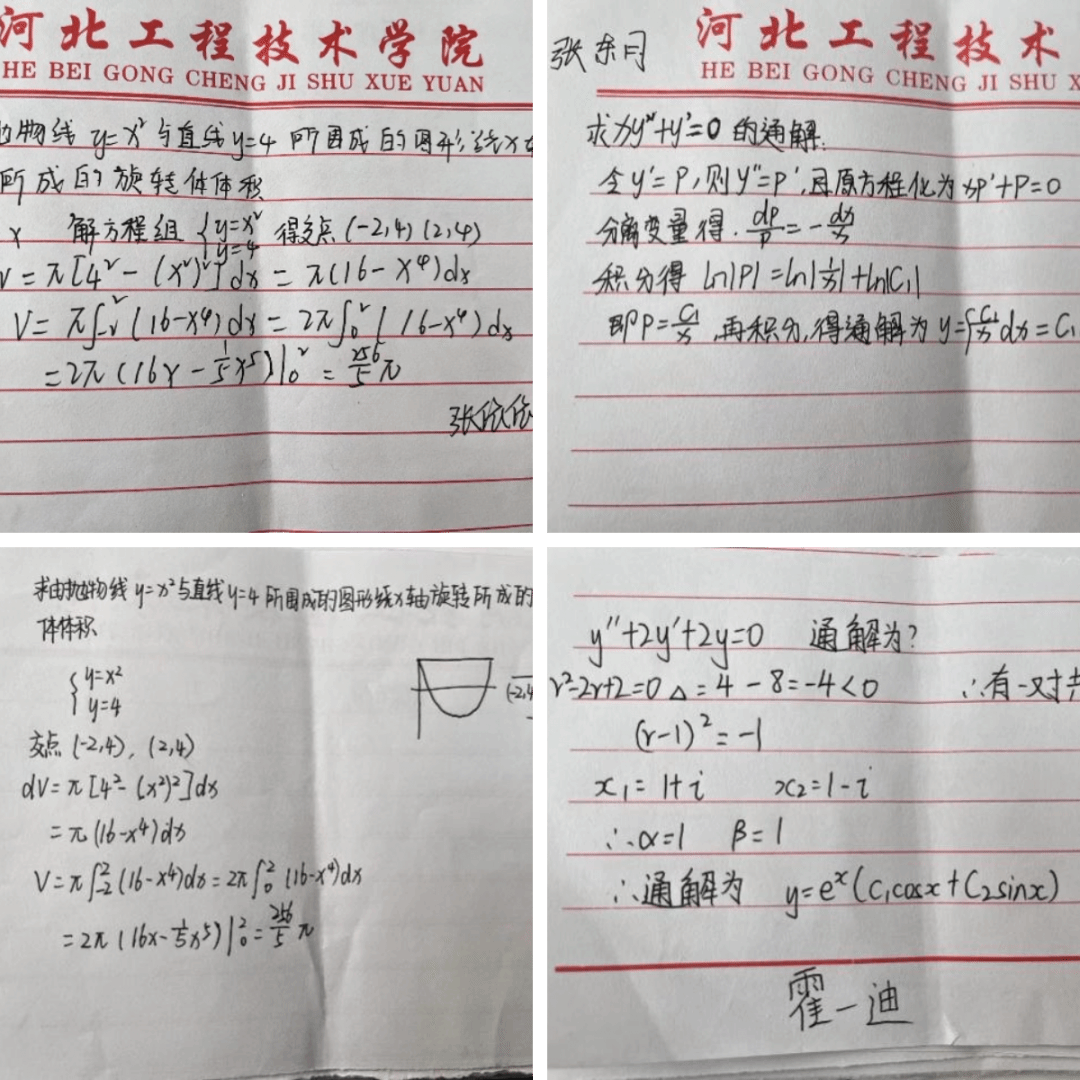 河北工程技术学院
HE BEI GONG CHENG JI SHU XUE YUAN
物线 y=x² 与直线y=4 所围成的图形绕x
所成的旋转体体积
x 解方程组 {y=x² y=4 得交点 (-2,4) (2,4)
V=π[4²-(x²)²]dx=π(16-x⁴)dx
V=π∫₋₂²(16-x⁴)dx=2π∫₀²(16-x⁴)dx
=2π(16x-1/5x⁵)|₀²=256/5π
张依依
张东月
河北工程技术
HE BEI GONG CHENG JI SHU X
求xy"+y'=0 的通解.
令y'=P,则y"=P',且原方程化为xP'+P=0
分离变量得.dP/P=-dx/x
积分得 ln|P|=ln|1/x|+ln|C₁|
即P=C₁/x,再积分,得通解为y=∫C₁/x dx=C₁
求由抛物线y=x²与直线y=4所围成的图形绕x轴旋转所成的
体体积
{y=x²
y=4
(-2,4
交点(-2,4),(2,4)
dV=π[4²-(x²)²]dx
=π(16-x⁴)dx
V=π∫₋₂²(16-x⁴)dx=2π∫₀²(16-x⁴)dx
=2π(16x-1/5x⁵)|₀²=256/5π
y''+2y'+2y=0 通解为?
r²-2r+2=0 △=4-8=-4<0 ∴有一对共
(r-1)²=-1
x₁=1+i x₂=1-i
∴α=1 β=1
∴通解为 y=eˣ(C₁cosx+C₂sinx)
霍一迪